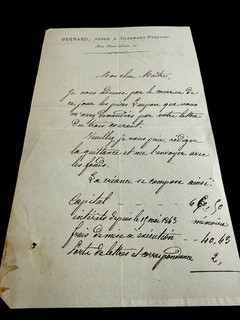 BERNARD, AVOUÉ A CLERMONT-FERRAND
Rue Saint-Louis
Mon cher Maître,
Je vous adresse par le courrier de
ce jour les pièces Laugon que vous
m'avez demandées par votre lettre
du trois courant.
Veuillez, je vous prie, rédiger
la quittance et me l'envoyer avec
les fonds.
La créance se compose ainsi:
Capital - - - 50
intérêts depuis le 1er mai 1863 mémoire
frais de mise à exécution - - 40.65
Ports de lettres et correspondance 2,